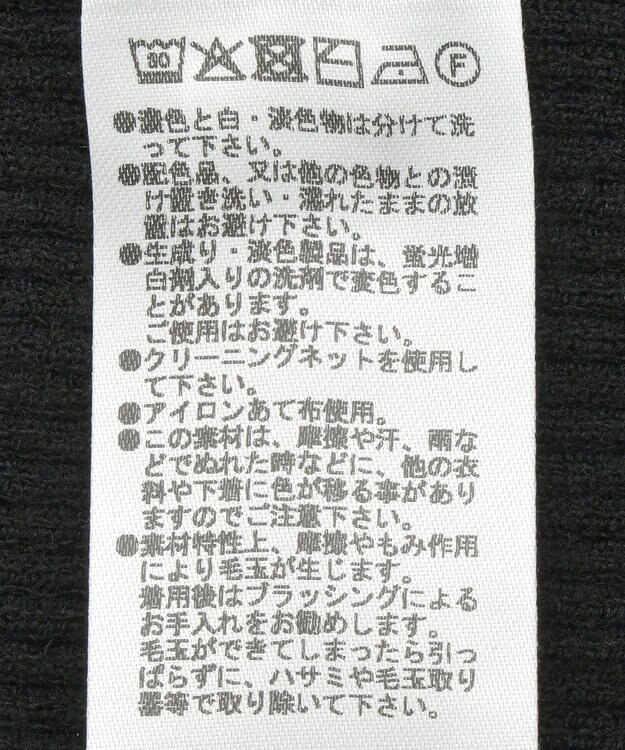 30
F
●濃色と白・淡色物は分けて洗
って下さい。
●配色品、又は他の色物との漬
け置き洗い・濡れたままの放
置はお避け下さい。
●生成り・淡色製品は、蛍光増
白剤入りの洗剤で変色するこ
とがあります。
ご使用はお避け下さい。
●クリーニングネットを使用し
て下さい。
●アイロンあて布使用。
●この素材は、摩擦や汗、雨な
どでぬれた時などに、他の衣
料や下着に色が移る事があり
ますのでご注意下さい。
●素材特性上、摩擦やもみ作用
により毛玉が生じます。
着用後はブラッシングによる
お手入れをお勧めします。
毛玉ができてしまったら引っ
ぱらずに、ハサミや毛玉取り
器等で取り除いて下さい。